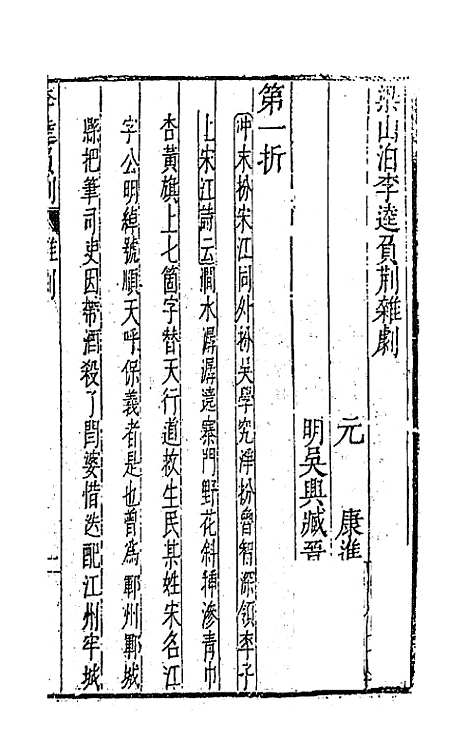 梁山泊李逵負荆雜劇
元　康進
明吳興臧晉
第一折
冲末扮宋江同外扮吳學究淨扮魯智深領卒子
上宋江詩云澗水潺潺遶寨門野花斜揷滲青巾
杏黃旗上七箇字替天行道救生民某姓宋名江
字公明綽號順天呼保義者是也曾爲鄆州鄆城
縣把筆司吏因帶酒殺了閻婆惜迭配江州牢城
李逵負荆　雜劇　一